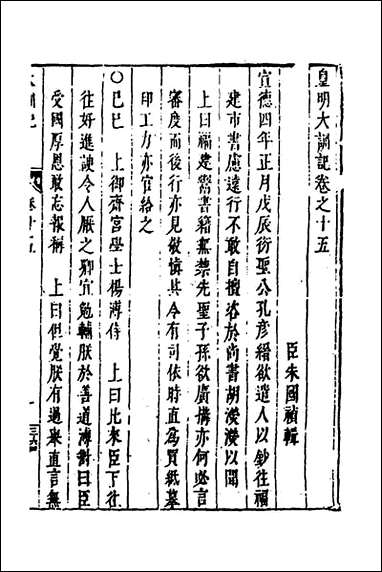 皇明大訓記卷之十五
臣朱國禎輯
宣德四年正月戊辰衍聖公孔彦縉欲遣人以鈔往福
建市書慮遠行不敢自擅咨於尚書胡濙濙以聞
上曰福建鬻書籍無禁先聖子孫欲廣搆亦何必言
審度而後行亦見敬慎其令有司依時直爲買紙摹
印工力亦官給之
○己巳　上御齊宮學士楊溥侍　上曰比來臣下往
往好進諛令人厭之卿宜勉輔朕於善道溥對曰臣
受國厚恩敢忘報稱　上曰但覺朕有過来直言無
卷十五